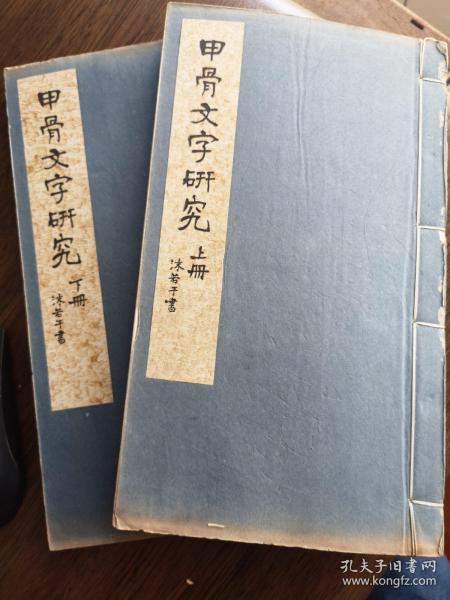 甲骨文字研究
上冊
沫若于書
甲骨文字研究
下冊
沫若于書
孔夫子旧书网
www.kongfz.com